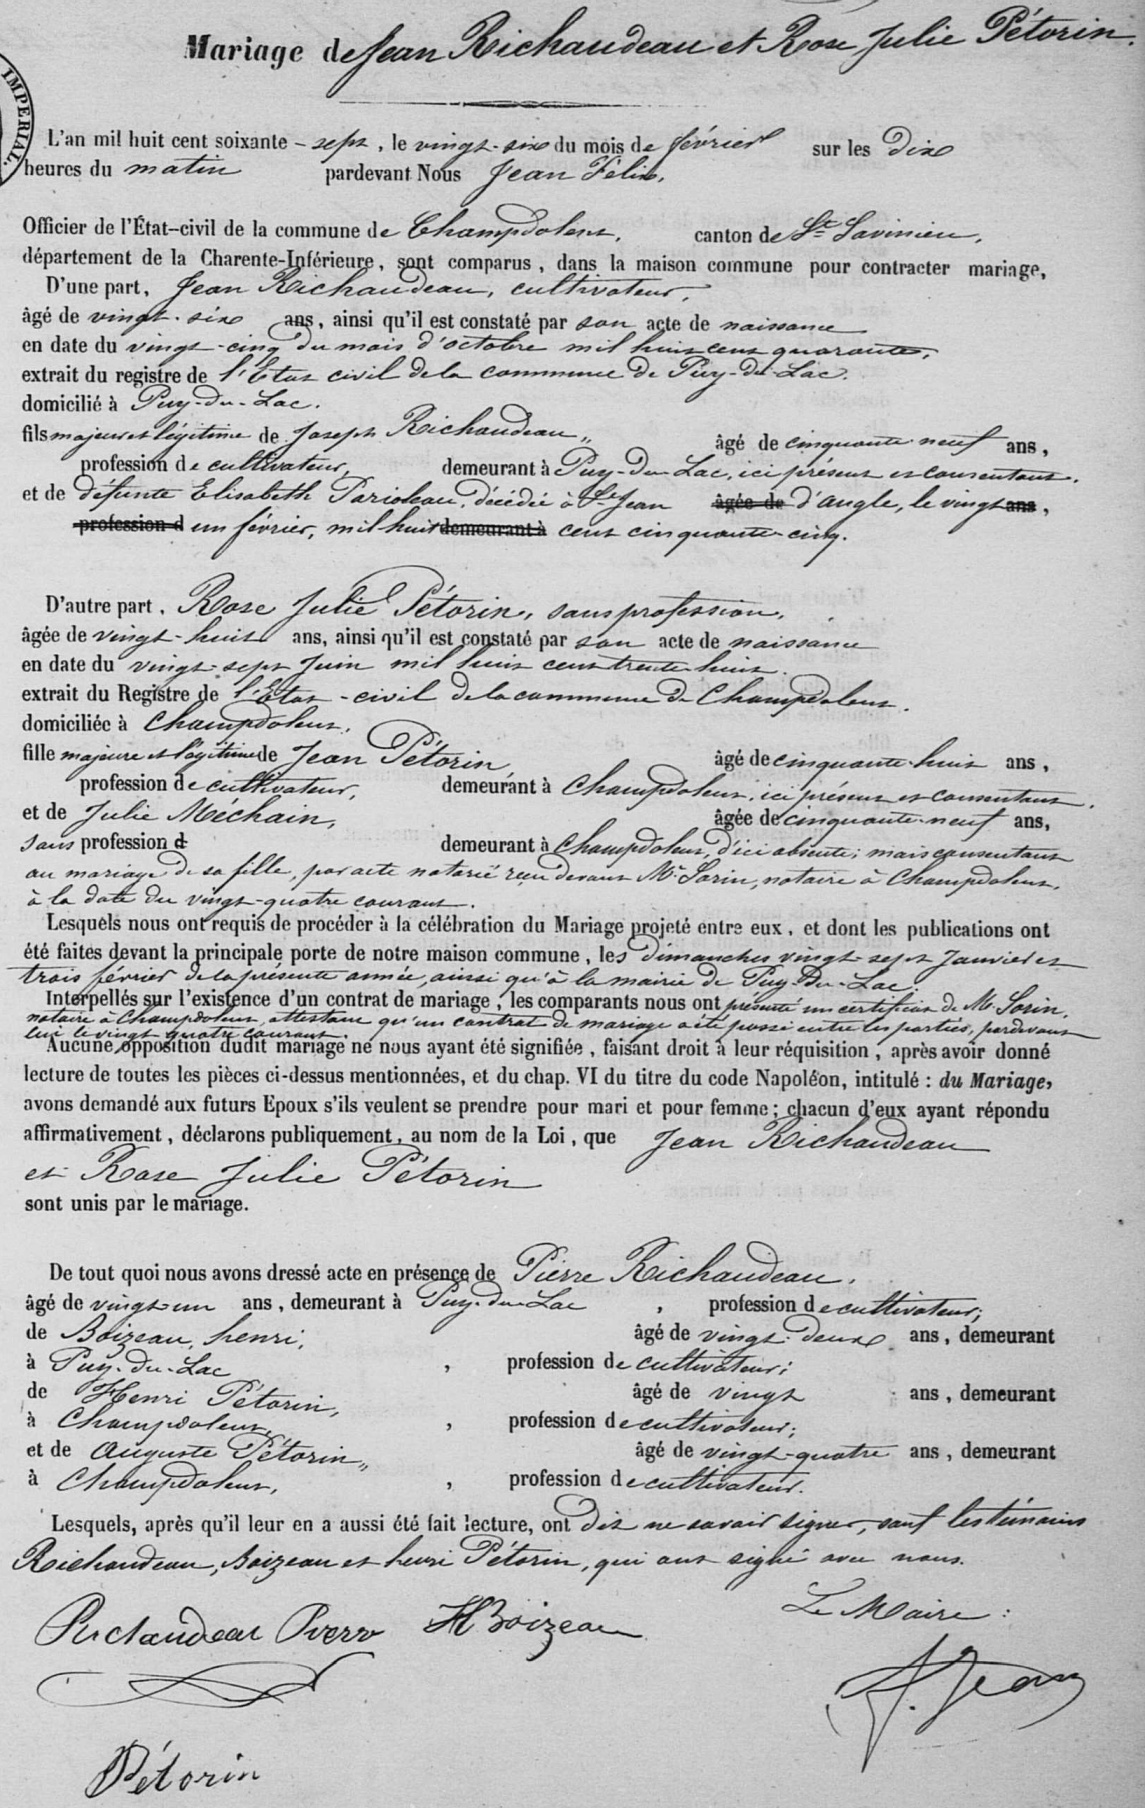 IMPERIAL.
Mariage de Jean Richaudeau et Rose Julie Pétorin.
L'an mil huit cent soixante - sept, le vingt-six du mois de février sur les dix
heures du matin pardevant Nous Jean Félix,
Officier de l'État-civil de la commune de Champdolent, canton de St Savinien,
département de la Charente-Inférieure, sont comparus, dans la maison commune pour contracter mariage,
D'une part, Jean Richaudeau, cultivateur,
âgé de vingt-six ans, ainsi qu'il est constaté par son acte de naissance
en date du vingt-cinq du mois d'octobre mil huit cent quarante,
extrait du registre de l'Etat civil de la commune de Puy-du-Lac.
domicilié à Puy-du-Lac.
fils majeur et légitime de Joseph Richaudeau „ âgé de cinquante-neuf ans,
profession de cultivateur, demeurant à Puy-du-Lac, ici présent et consentant.
et de défunte Elisabeth Parioleau, décédée à St Jean âgée de d'angle, le vingt ans,
profession d un février, mil huit demeurant à cent cinquante-cinq.
D'autre part, Rose Julie Pétorin, sans profession,
âgée de vingt-huit ans, ainsi qu'il est constaté par son acte de naissance
en date du vingt-sept Juin mil huit cent trente-huit.
extrait du Registre de l'Etat-civil de la commune de Champdolent.
domiciliée à Champdolent,
fille majeure et légitime de Jean Pétorin âgé de cinquante-huit ans,
profession de cultivateur, demeurant à Champdolent, ici présent et consentant.
et de Julie Méchain, âgée de cinquante-neuf ans,
sans profession d demeurant à Champdolent, d'ici absente; mais consentant
au mariage de sa fille, par acte notarié reçu devant Mr Sorin, notaire à Champdolent,
à la date du vingt-quatre courant.
Lesquels nous ont requis de procéder à la célébration du Mariage projeté entre eux, et dont les publications ont
été faites devant la principale porte de notre maison commune, les dimanches vingt-sept Janvier et
trois février de la présente année, ainsi qu'à la mairie de Puy-du-Lac.
Interpellés sur l'existence d'un contrat de mariage, les comparants nous ont présenté un certificat de Mr Sorin,
notaire à Champdolent, attestant qu'un contrat de mariage a été passé entre les parties, pardevant
lui le vingt-quatre courant.
Aucune opposition dudit mariage ne nous ayant été signifiée, faisant droit à leur réquisition, après avoir donné
lecture de toutes les pièces ci-dessus mentionnées, et du chap. VI du titre du code Napoléon, intitulé : du Mariage,
avons demandé aux futurs Epoux s'ils veulent se prendre pour mari et pour femme; chacun d'eux ayant répondu
affirmativement, déclarons publiquement, au nom de la Loi, que Jean Richaudeau
et Rose Julie Pétorin
sont unis par le mariage.
De tout quoi nous avons dressé acte en présence de Pierre Richaudeau,
âgé de vingt-un ans, demeurant à Puy-du-Lac , profession de cultivateur;
de Boizeau, henri, âgé de vingt-deux ans, demeurant
à Puy-du-Lac , profession de cultivateur;
de Henri Pétorin, âgé de vingt ans, demeurant
à Champdolent , profession de cultivateur;
et de Auguste Pétorin „ âgé de vingt-quatre ans, demeurant
à Champdolent, , profession de cultivateur.
Lesquels, après qu'il leur en a aussi été fait lecture, ont dit ne savoir signer, sauf les témoins
Richaudeau, Boizeau et henri Pétorin, qui ont signé avec nous.
Le Maire :
Richaudeau Pierre H Boizeau
F. Jean
Pétorin